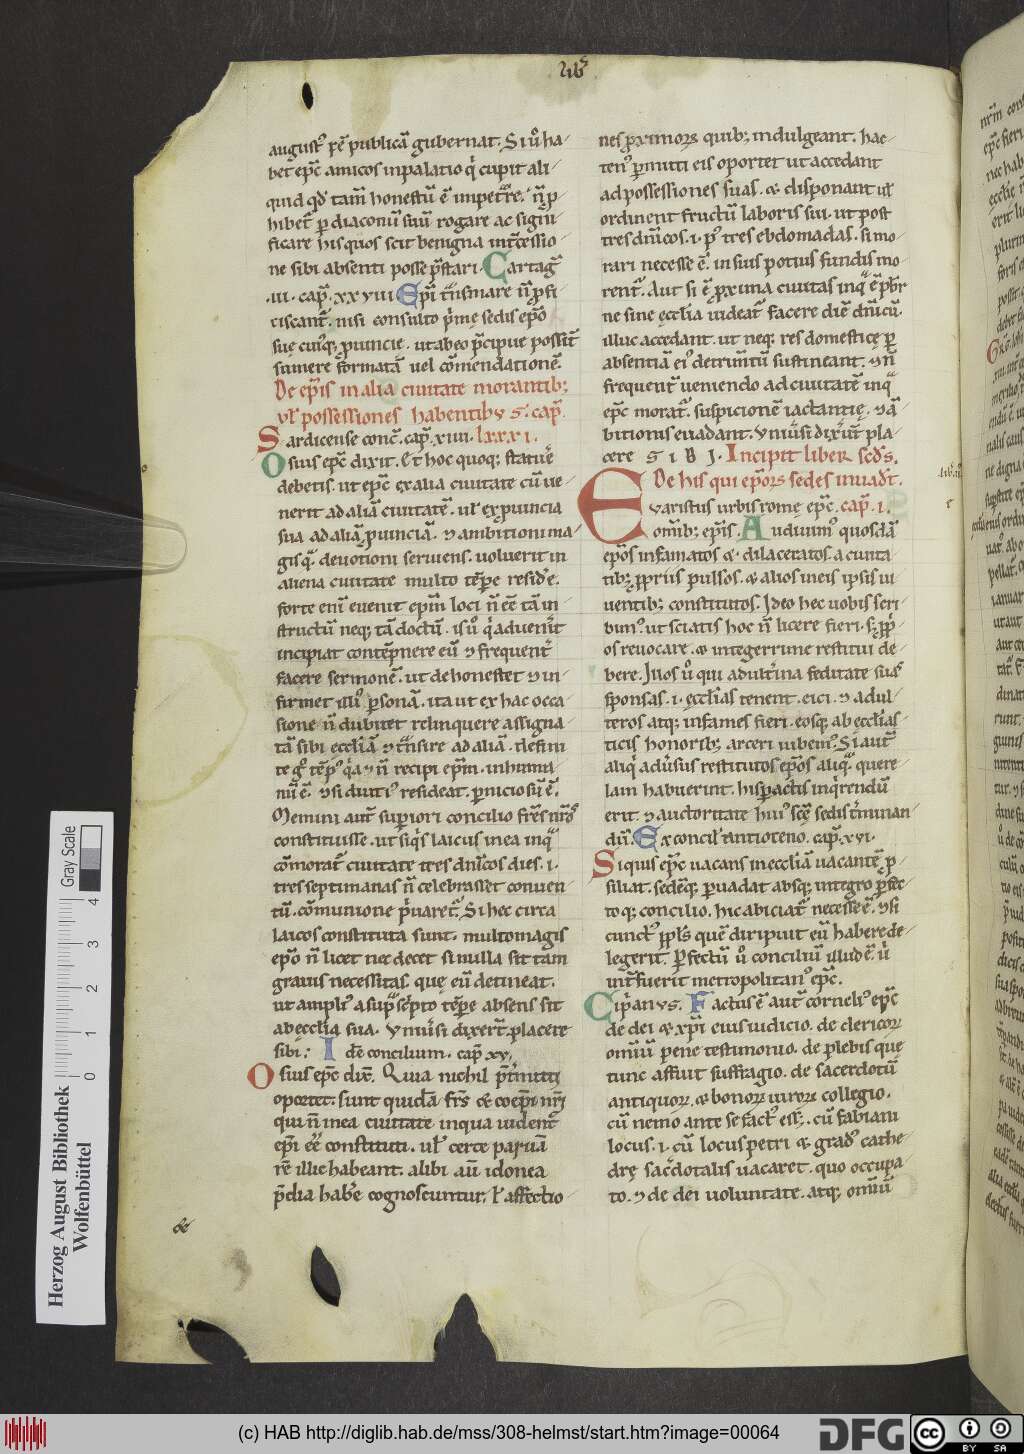 Lib͛
august᷒ rē publicā gubernat. Si ū ha-
bet ep̄c amicos in palatio q̇ cupit ali-
quid qd́ tam̄ honestū ē impetrͣe. n̄ p̱-
hibet᷒ p̱ diaconū suū rogare ac signi-
ficare his quos scit benigna int̄cessio-
ne sibi absenti posse p̄stari. Cartag̅
.iii. cap̄. xxviii. Ep̄i tͣnsmare n̄ p̱fi-
ciscant᷒. nisi consulto p̄mę sedis ep̄o
suę cui᷒q; p̱uincie. ut ab eo p̄cipue possit᷒
sumere formatā uel cōmendationē.
De ep̄is in alia ciuitate morantib;
vl̄ possessiones habentibus G. cap̄.
Sardicense conc̄. cap̄. xiiii. lxxxi.
Osius ep̄c dixit. Et hoc quoq; statue᷒
debetis. ut ep̄c ex alia ciuitate cū ue-
nerit ad aliā ciuitatē. ul̄ ex p̱uincia
sua ad aliā p̱uinciā. ⁊ ambitioni ma-
gis qͣ deuotioni seruiens. uoluerit in
aliena ciuitate multo tēpe residē.
forte enī euenit ep̄m loci n̄ eē tā in-
structū neq; tā doctū. is ū q̇ aduenit
incipiat contēpnere eū ⁊ frequent᷒
facere sermonē. ut dehonestet ⁊ in-
firmet illi᷒ p̱sonā. ita ut ex hac occa
sione n̄ dubitet relinquere assigna-
tā sibi eccl̄iā ⁊ tͣnsire ad aliā. defini
te g᷒ tēp᷒ q̇a ⁊ n̄ recipi ep̄m. inhuma-
nū ē. ⁊ si diuti᷒ resideat. p̱niciosū ē.
Memini aut̄ sup̱iori concilio fr̄s nr̄os
constituisse. ut siq̇s laicus in ea inqͣ
cōmorat᷒ ciuitate tres dn̄icos dies. i.
tres septimanas n̄ celebrasset conuen-
tū. cōmunione ṗuaret᷒. Si hec circa
laicos constituta sunt. multomagis
ep̄o n̄ licet nec decet si nulla sit tam
grauis necessitas. quę eū detineat.
ut ampli᷒ a sup̱scͥpto tēpe absens sit
ab ecclīa sua. Vniu᷒si dixer̄t. placere
sibi; Idē concilium. cap̄ xv.
Osius ep̄c dix̄. Quia nichil p̄t̄mitti
oportet. sunt quidā fr̄s & coep̄i nr̄i
qui n̄ in ea ciuitate in qua uident᷒
ep̄i eē constituti. ul̄ certe paruā
rē illic habeant. alibi aū idonea
p̄dia habe᷒ cognoscuntur. l̄ affectio-
&
nes p̱ximoꝝ quib; indulgeant. hac-
ten᷒ p̱mitti eis oportet ut accedant
ad possessiones suas. & disponant ul̄
ordinent fructū laboris sui. ut post
tres dn̄icos. i. p᷒ tres ebdomadas. si mo-
rari necesse ē. in suis potius fundis mo
rent᷒. Aut si ē p̱xima ciuitas in qͣ ē p̄br̄
ne sine ęccl̄ia uideat᷒ facere diē dn̄icū.
illuc accedant. ut neq; res domesticę p̱
absentiā ei᷒ detrimtū sustineant. ⁊ n̄
frequent᷒ ueniendo ad ciuitatē inqͣ
ep̄c morat᷒. suspicionē iactantię. ⁊ ā
bitionis euadant. Vniu᷒si dixer̄t pla-
cere SIBI. Incipit liber scd̄s.
De his qui ep̄oꝝ sedes inuadt̄.
Evaristus urbis romę ep̄c. cap̄. i.
omib; ep̄is. Audiuim᷒ quosdā
ep̄os infamatos & dilaceratos. a ciuita
tib; p̱priis pulsos. & alios in eis ipsis ui-
uentib; constitutos. Ideo hec uobis scri
bim᷒. ut sciatis hoc n̄ licere fieri. s; p̱pͥ-
os reuocare. & integerrime restitui de-
bere. Illos ū qui adult̄ina feditate suas
sponsas. i. ęccl̄ias tenent. eici. ⁊ adul-
teros atq; infames fieri. eosq; ab eccl̄ias-
ticis honorib; arceri iubem᷒. Si aut̄
aliq̇ adūsus restitutos ep̄os aliqͣ quere-
lam habuerint. his p̱actis inq̇rendū
erit. ⁊ auctoritate hui᷒ scę̄ sedis t̄minan-
dū. Ex concil̄ antioceno. cap̄. xvi.
Siquis ep̄c uacans in eccl̄iā uacantē p̱-
siliat. sedēq; p̱uadat absq; integro p̱fec-
toq; concilio. hic abiciat᷒ necesse ē. ⁊ si
cunct᷒ ppl̄s quē diripuit eū habere de-
legerit. P̱fectū ū conciliū illud ē. ū
int̄fuerit metropolitan᷒ ep̄c.
Cip̱ianus. Fact᷒ ē aut̄ corneli᷒ ep̄c
de dei & xp̄i eius iudicio. de clericoꝝ
omiū pene testimonio. de plebis que
tunc affuit suffragio. de sacerdotū
antiquoꝝ. & bonoꝝ uiroꝝ collegio.
cū nemo ante se fact᷒ eēt. cū fabiani
locus. i. cū locus petri & grad᷒ cathe-
drę sacdotalis uacaret. quo occupa-
to. ⁊ de dei uoluntate. atq; omiū
Herzog August Bibliothek
Wolfenbüttel
0 1 2 3 4
Gray Scale
(c) HAB http://diglib.hab.de/mss/308-helmst/start.htm?image=00064
DFG
cc BY SA